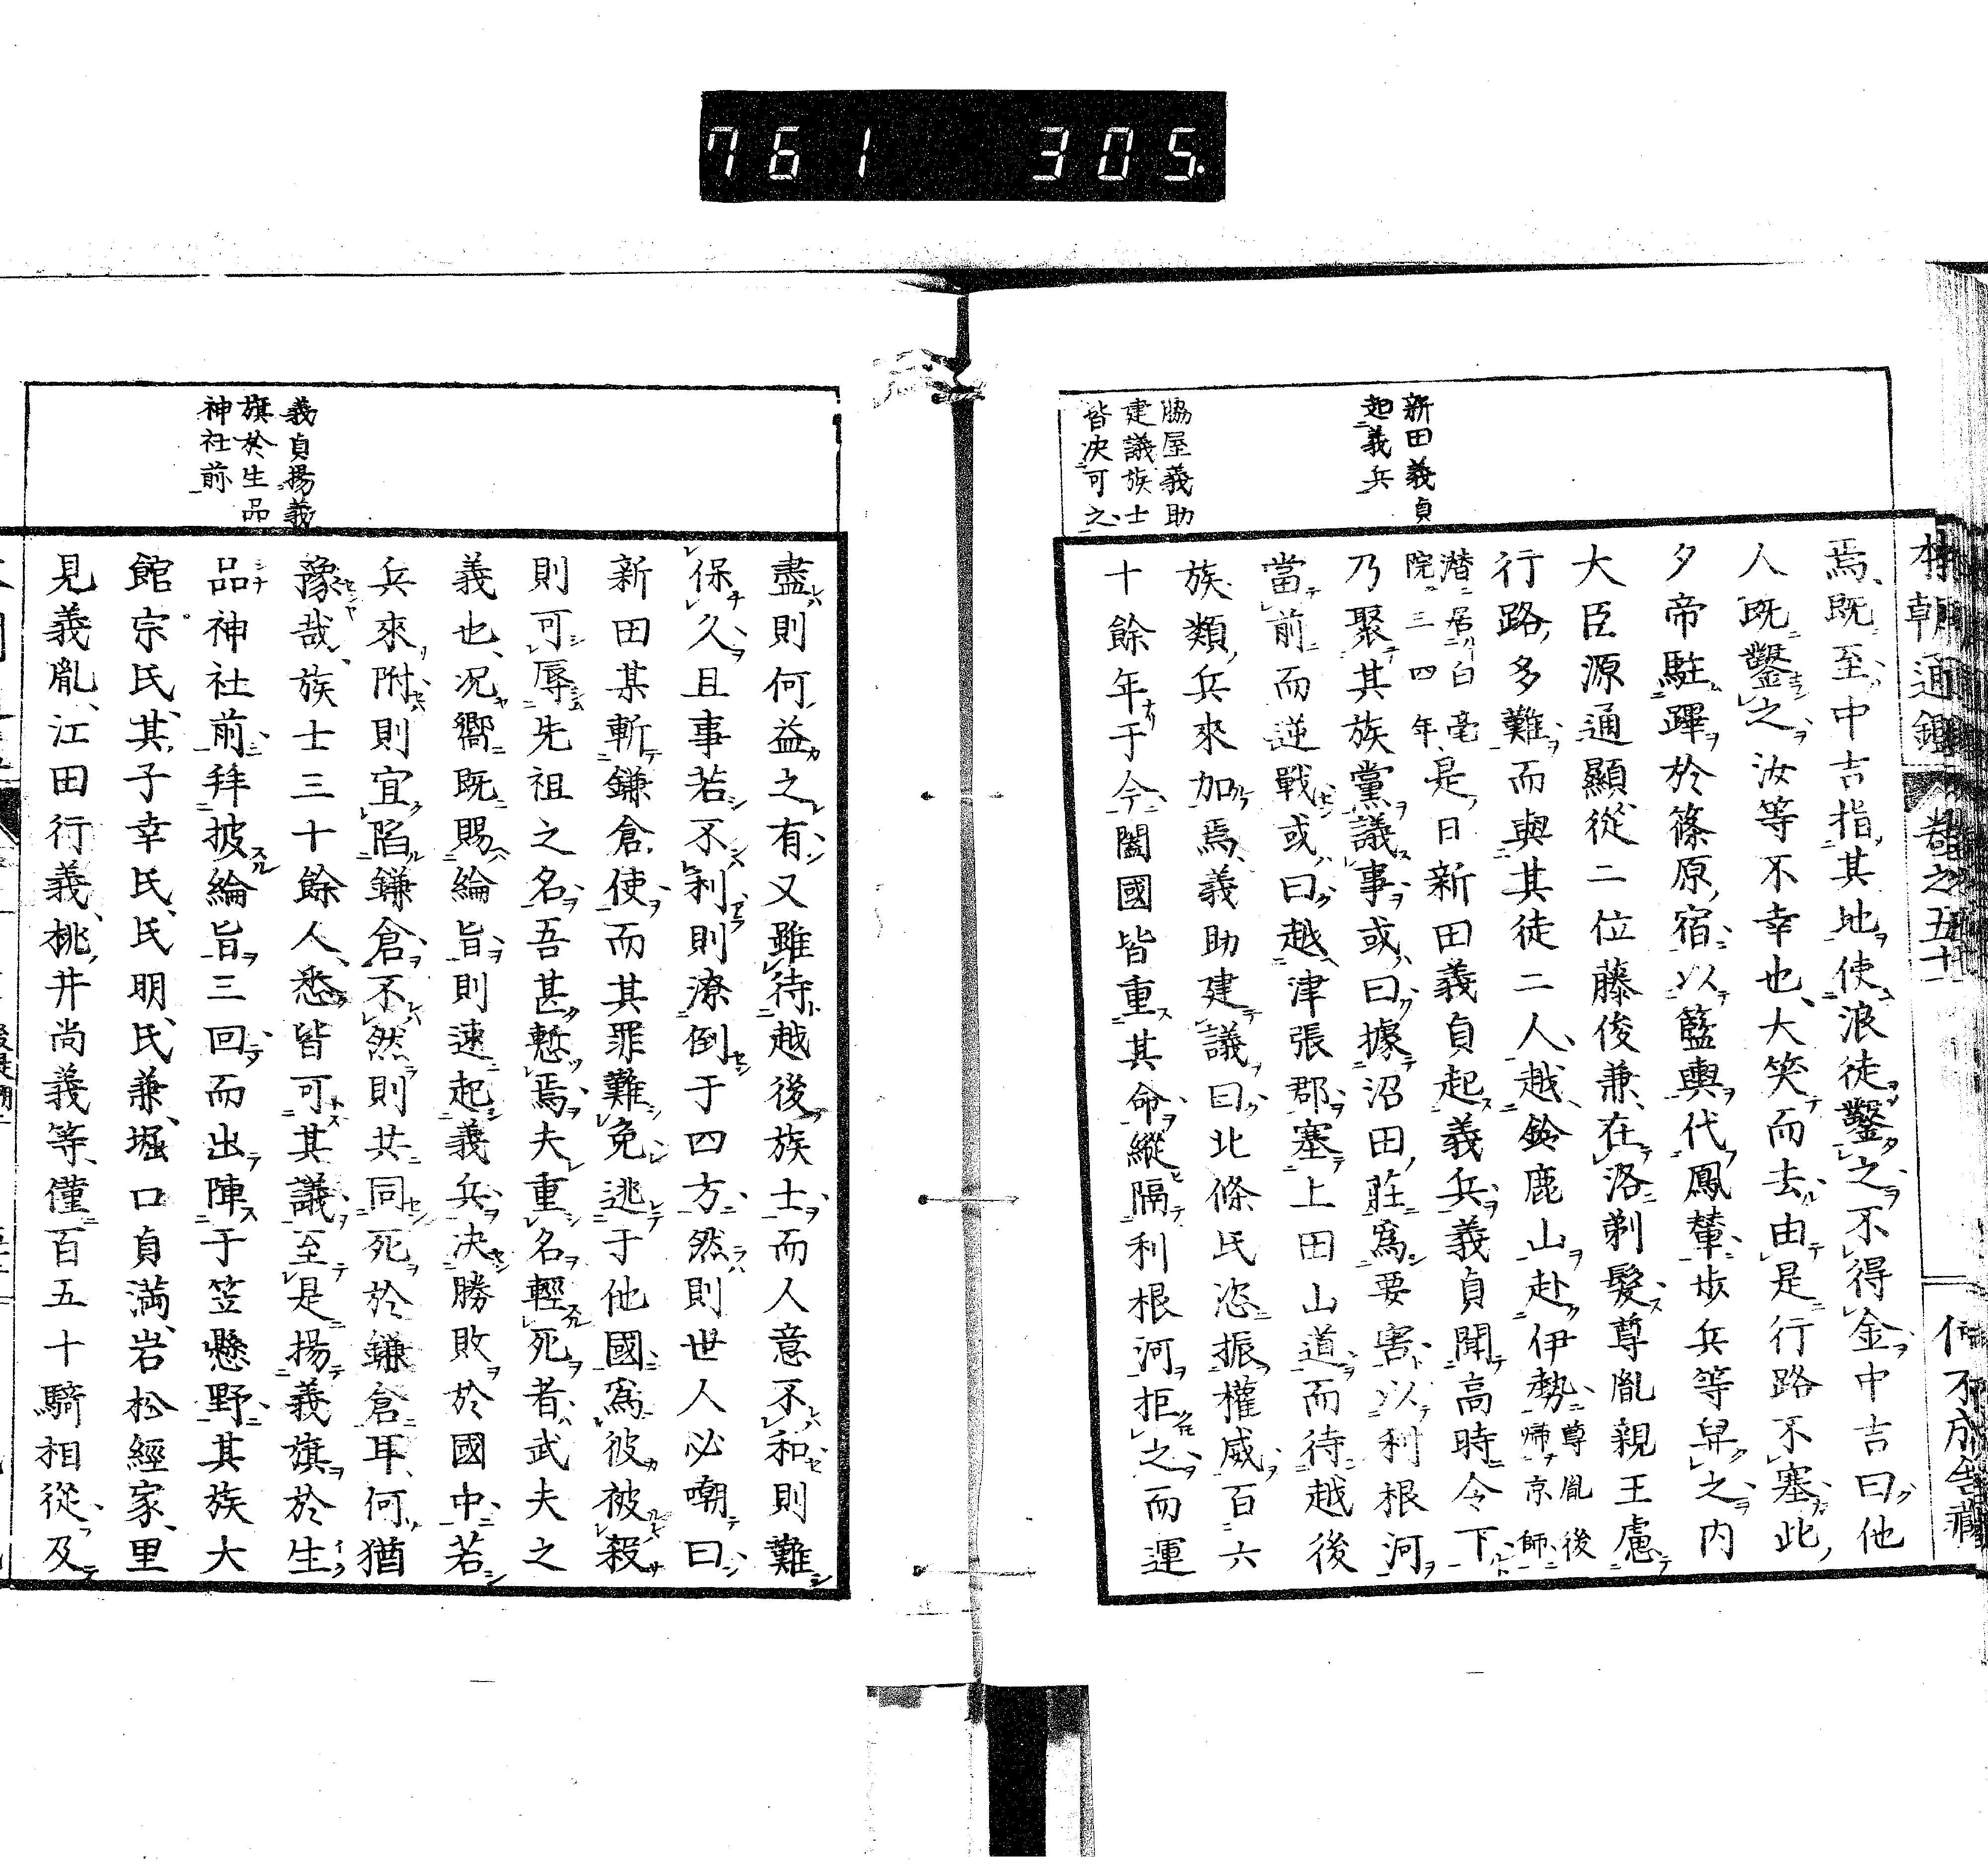 761 305.
本朝通鑑 卷之五十
新田義貞
起義兵
脇屋義助
建議族士
皆决可之
焉既至中吉指其地使浪徒鑿之不得金中吉曰他
人既鑿之汝等不幸也大笑而去由是行路不塞此
夕帝駐蹕於篠原宿以籃輿代鳳輦步兵等舁之内
大臣源通顯從二位藤俊兼在洛剃髮尊胤親王慮
行路多難而與其徒二人越鈴鹿山赴伊勢尊胤後歸京師
潜居白毫院三四年是日新田義貞起義兵義貞聞高時令下
乃聚其族黨議事或曰據沼田莊爲要害以利根河
當前而逆戰或曰越津張郡塞上田山道而待越後
族類兵來加焉義助建議曰北條氏恣振權威百六
十餘年于今闔國皆重其命縱隔利根河拒之而運
義貞揚義
旗於生品
神社前
盡則何益之有又雖待越後族士而人意不和則難
保久且事若不利則潦倒于四方然則世人必嘲曰
新田某斬鎌倉使而其罪難免逃于他國爲彼被殺
則可辱先祖之名吾甚慙焉夫重名輕死者武夫之
義也况嚮既賜綸旨則速起義兵决勝敗於國中若
兵來附則宜陷鎌倉不然則共同死於鎌倉耳何猶
豫哉族士三十餘人悉皆可其議至是揚義旗於生
品神社前拜披綸旨三回而出陣于笠懸野其族大
館宗氏其子幸氏氏明氏兼堀口貞滿岩松經家里
見義胤江田行義桃井尚義等僅百五十騎相從及